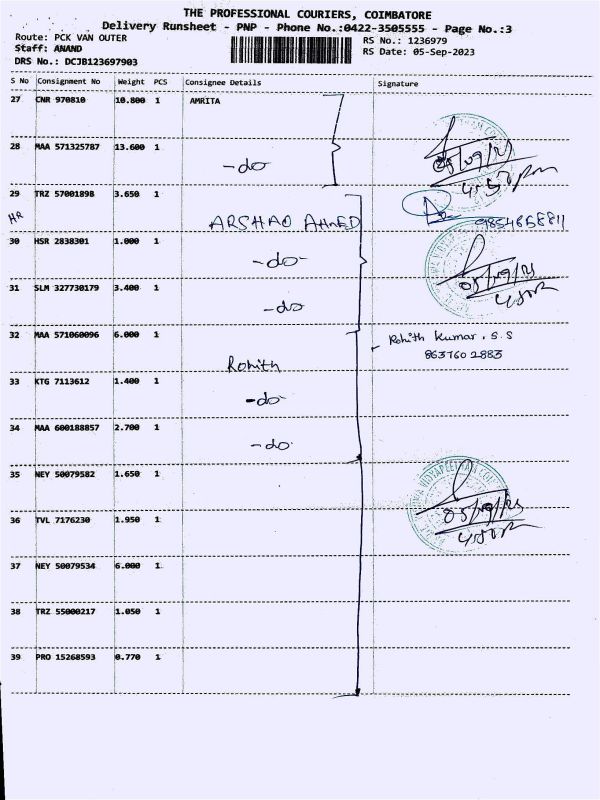 THE PROFESSIONAL COURIERS, COIMBATORE
Delivery Runsheet - PNP - Phone No.:0422-3505555 - Page No.:3
Route: PCK VAN OUTER
RS No.: 1236979
Staff: ANAND
RS Date: 05-Sep-2023
DRS No.: DCJB123697903
S No Consignment No Weight PCS Consignee Details Signature
27 CNR 970810 10.800 1 AMRITA
28 MAA 571325787 13.600 1 -do
05/09/23
4:50pm
29 TRZ 57001898 3.650 1 ARSHAD AHMED
HR
9854658811
30 HSR 2838301 1.000 1 -do-
31 SLM 327730179 3.400 1 -do
05/09/23
32 MAA 571060096 6.000 1 Rohith
Rohith Kumar . S.S
863760 2883
33 KTG 7113612 1.400 1 -do-
34 MAA 600188857 2.700 1 -do-
35 NEY 50079582 1.650 1
36 TVL 7176230 1.950 1
05/09/23
37 NEY 50079534 6.000 1
38 TRZ 55000217 1.050 1
39 PRO 15268593 0.770 1